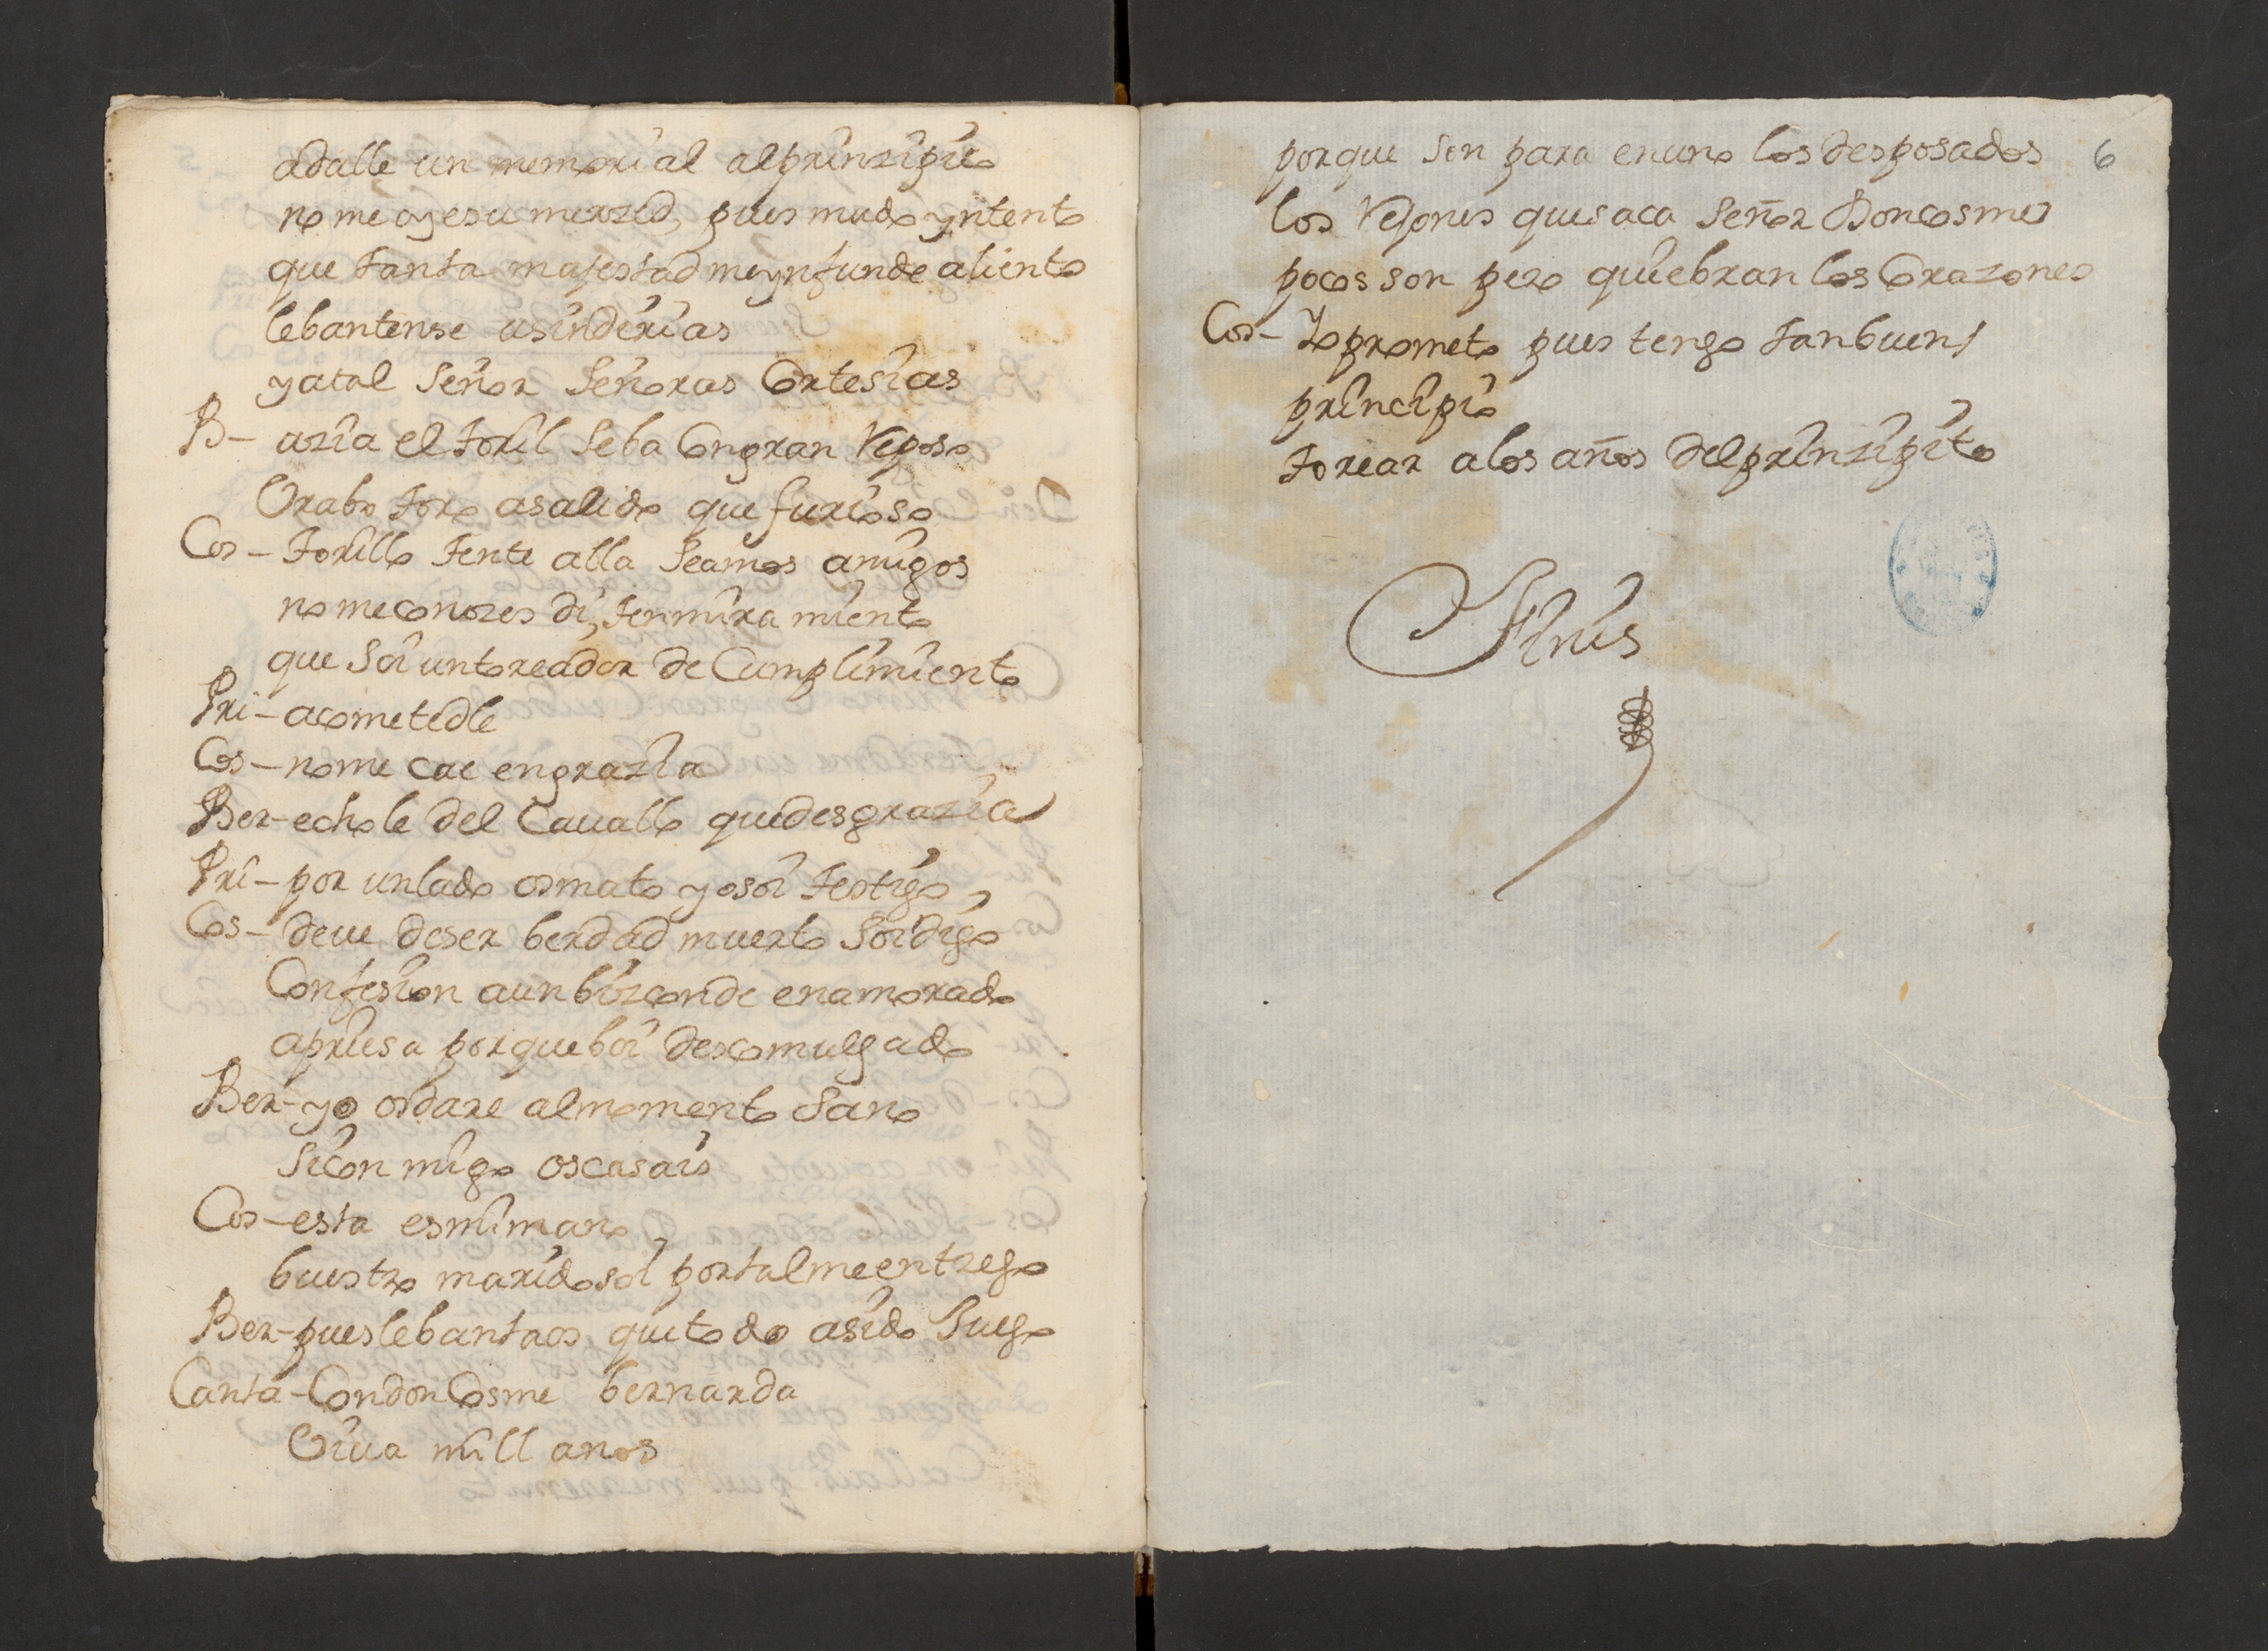 adalle un memorial al prinzipio
no me oye su merzed, pues mudo yntento
que tanta majestad me ynfunde aliento
lebantense usinderias
y a tal Señor Señoras Cortesias
B- azia el toril se ba Con gran Reposo
Brabo toro a salido que furioso
Cos- torillo tente alla Seamos amigos
no me conozes di, ten mira miento
que soi un toreador de Cumplimiento
Pri- acometedle
Cos- no me cae en grazia
Ber- echole del Cauallo que desgrazia
Pri- por un lado os mato yo soi testigo
Cos- deue de ser berdad muerto soi digo
Confesion a un bizconde enamorado
apriesa porque boi descomulgado
Ber- yo os dare al momento sano
si con migo os casais
Cos- esta es mi mano
buestro marido soi por tal me entrego
Ber- pues lebantaos que todo a sido Juego
Canta- Con don Cosme bernarda
Viua mill anos
porque son para en uno los desposados
6
los Rejones que saca Señor Don cosme
pocos son pero quiebran los Corazones
Cos- Yo prometo pues tengo tan buen
principio
torear a los años del prinzipito
Finis